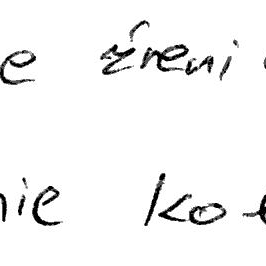 e źreni
nie ko